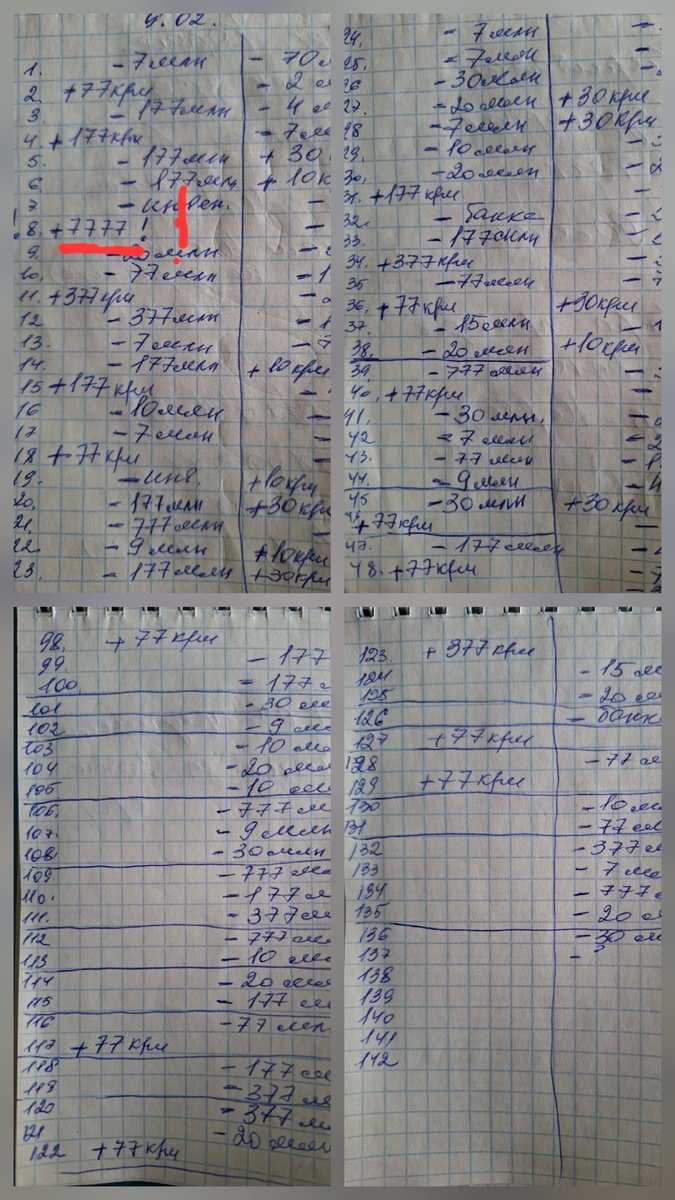 4.02.
1. - 7 млн - 70 м
2. +77 крм - 2
3. - 177 млн - 4
4. +177 крм - 7 м
5. - 177 млн + 30
6. - 177 млн + 10 к
7 - инвен.
8. +7777 ! -
9. - 20 млн -
10. - 77 млн - 1
11. +377 крм -
12 - 377 млн - 1
13. - 7 млн - 7
14. - 177 млн + 10 крм
15 +177 крм -
16 - 10 млн -
17 - 7 млн -
18 +77 крм -
19. - инв. +10 крм
20. - 177 млн +30 крм
21. - 777 млн -
22 - 9 млн +10 крм
23. - 177 млн +30 крм
24. - 7 млн -
25. - 7 млн -
26 - 30 млн -
27. - 20 млн +30 крм
28 - 7 млн +30 крм
29. - 10 млн -
30. - 20 млн - 2
31. +177 крм -
32. - банка -
33. - 177 млн -
34. +377 крм -
35 - 77 млн -
36. +77 крм +30 крм
37. - 15 млн -
38. - 20 млн +10 крм
39. - 777 млн -
40. +77 крм -
41. - 30 млн. -
42 - 7 млн - 2
43. - 77 млн - 1
44. - 9 млн - 4
45 - 30 млн +30 крм
46. +77 крм -
47. - 177 млн -
48. +77 крм -
98. +77 крм
99. - 177
100. - 177
101 - 30 м
102 - 9 м
103 - 10 м
104 - 20 млн
105 - 10 м
106. - 777 м
107. - 9 млн
108. - 30 млн
109. - 777 м
110. - 177
111. - 377 м
112 - 777 м
113 - 10 м
114 - 20 мл
115 - 177 м
116 - 77 млн
117 +77 крм
118 - 177 м
119 - 377 м
120 - 377 м
121 - 20 млн
122 +77 крм
123 +377 крм
124 - 15 м
125 - 20 м
126 - банк
127 +77 крм
128 - 77 м
129 +77 крм
130 - 10 м
131 - 77 м
132 - 377 м
133 - 7 м
134 - 777
135 - 20
136 - 30 м
137 - ?
138
139
140
141
142